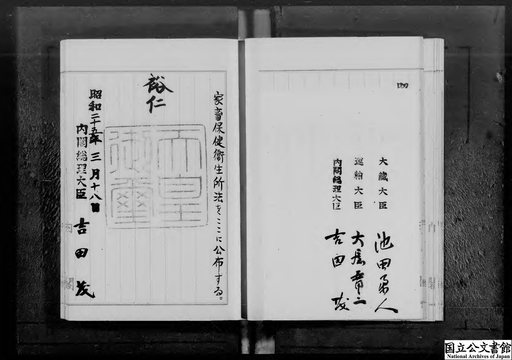 四
大蔵大臣 池田勇人
運輸大臣 大屋晋三
内閣総理大臣 吉田茂
家畜保健衛生所法をここに公布する。
裕仁
天皇御璽
昭和二十五年三月十八日
内閣総理大臣 吉田茂
国立公文書館
National Archives of Japan